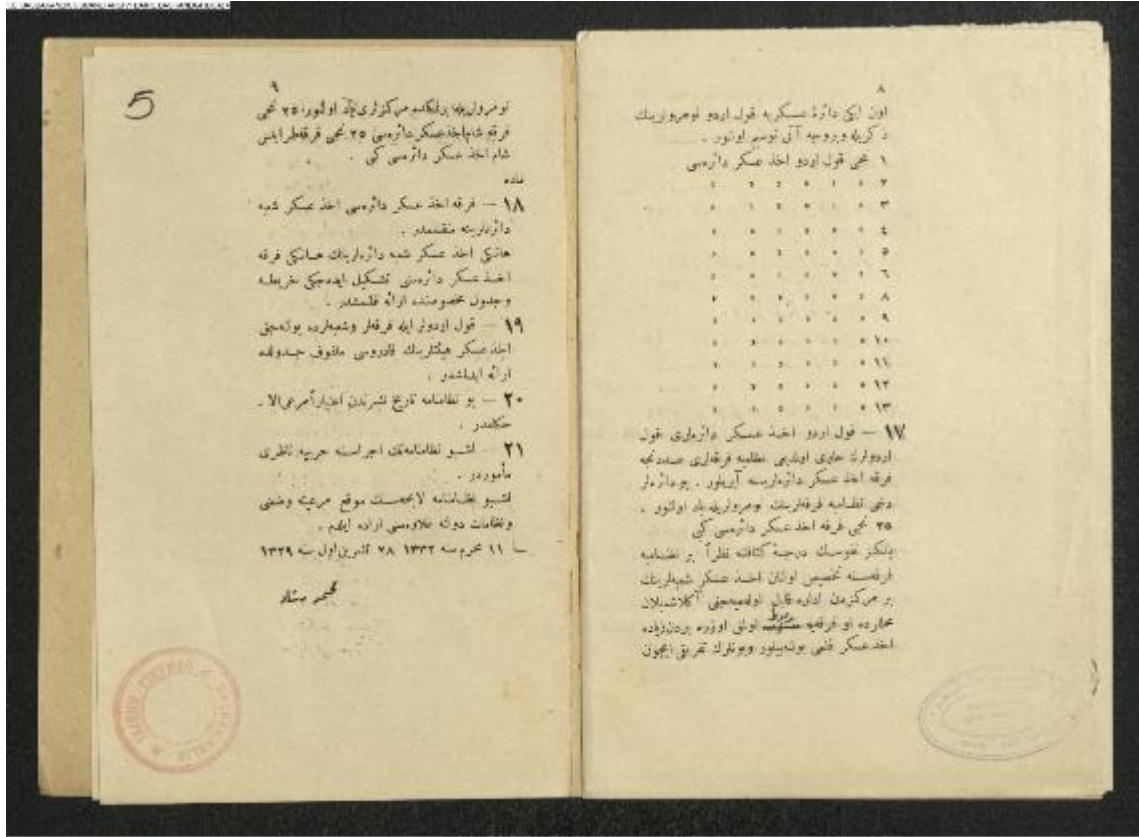 ٨
اون ایكی دائرهٔ عسكریه قول اردو نومرولرینك
ذكریله و بروجه آتی توسیم اولنور .
١ نجی قول اردو اخذ عسكر دائره‌سی
٢ » » » » » »
٣ » » » » » »
٤ » » » » » »
٥ » » » » » »
٦ » » » » » »
٨ » » » » » »
٩ » » » » » »
١٠ » » » » » »
١١ » » » » » »
١٢ » » » » » »
١٣ » » » » » »
١٧ — قول اردو اخذ عسكر دائره‌لری قول
اردولرك حاوی اولدیغی نظامیه فرقه‌لری عددنجه
فرقه اخذ عسكر دائره‌لرینه آیریلور . بو دائره‌لر
دخی نظامیه فرقه‌لرینك نومرولریله یاد اولنور .
٢٥ نجی فرقه اخذ عسكر دائره‌سی كبی
یالكز نفوسك درجهٔ كثافتنه نظراً بر نظامیه
فرقه‌سنه تخصیص اولنان اخذ عسكر شعبه‌لرینك
بر مركزدن اداره قابل اوله‌میه‌جغی آكلاشیلان
محللرده او فرقه‌یه مربوط اولمق اوزره بردن زیاده
اخذ عسكر قلمی بولنه‌بیلور وبونلرك تفریقی ایچون
٩
نومرولریله برلكده مركزلری یاد اولنور، ٢٥ نجی
فرقه شام اخذ عسكر دائره‌سی ٢٥ نجی فرقه طرابلس
شام اخذ عسكر دائره‌سی كبی .
ماده
١٨ — فرقه اخذ عسكر دائره‌سی اخذ عسكر شعبه
دائره‌لرینه منقسمدر .
هانكی اخذ عسكر شعبه دائره‌لرینك هانكی فرقه
اخذ عسكر دائره‌سنی تشكیل ایده‌جكی خریطه
وجدول مخصوصنده ارائه قلنمشدر .
١٩ — قول اردولر ایله فرقه‌لر وشعبه‌لرده بولنه‌جق
اخذ عسكر هیئتلرینك قادروسی ملفوف جدولده
ارائه ایدلمشدر .
٢٠ — بو نظامنامه تاریخ نشرندن اعتباراً مرعی‌الا-
حكامدر .
٢١ — اشبو نظامنامه‌نك اجراسنه حربیه ناظری
مأموردر .
اشبو نظامنامه لایحه‌سنك موقع مرعیته وضعنی
ونظامات دولته علاوه‌سنی اراده ایلدم .
١١ محرم سنه ١٣٣٢ ٢٨ تشرین‌ اول سنه ١٣٢٩
محمد رشاد
5